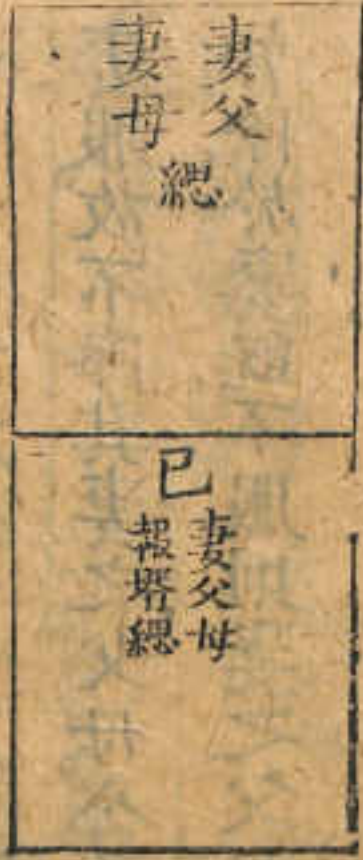 妻父
妻母
緦
己
妻父母
報壻緦